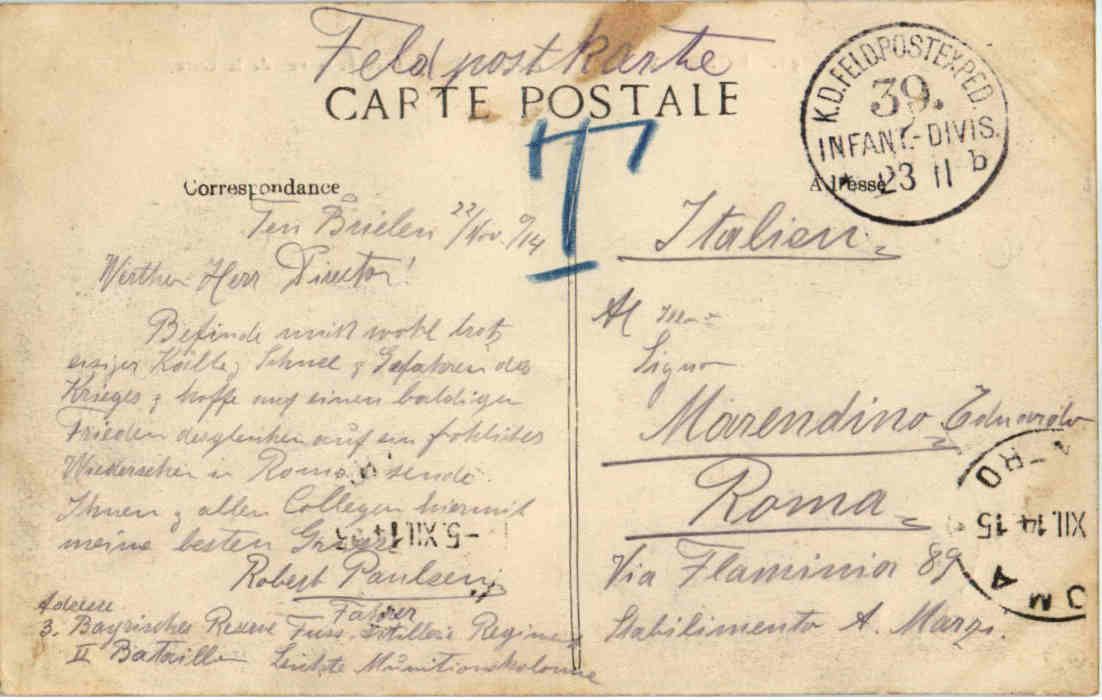 Feldpostkarte
CARTE POSTALE
K.D.FELDPOSTEXPED.
39.
INFANT.-DIVIS.
* 23 11 b
T
Correspondance
Adresse
Ten Brielen 22/Nov. 9/14
Werther Herr Director!
Befinde mich wohl trotz
eisiger Kälte, Schnee & Gefahren des
Krieges & hoffe auf einen baldigen
Frieden desgleichen auf ein fröhliches
Wiedersehen in Roma sende
Ihnen & allen Collegen hiermit
meine besten Grüsse
Robert Paulsen
Fahrer
3. Bayrisches Reserve Fuss-Artillerie Regiment
II Bataillon Leichte Munitionskolonne
-5.XII.14
Italien
Al
Signor
Marendino Eduardo
Roma
Via Flaminia 89
Stabilimento A. Marzi.
XII.14 15
ROMA